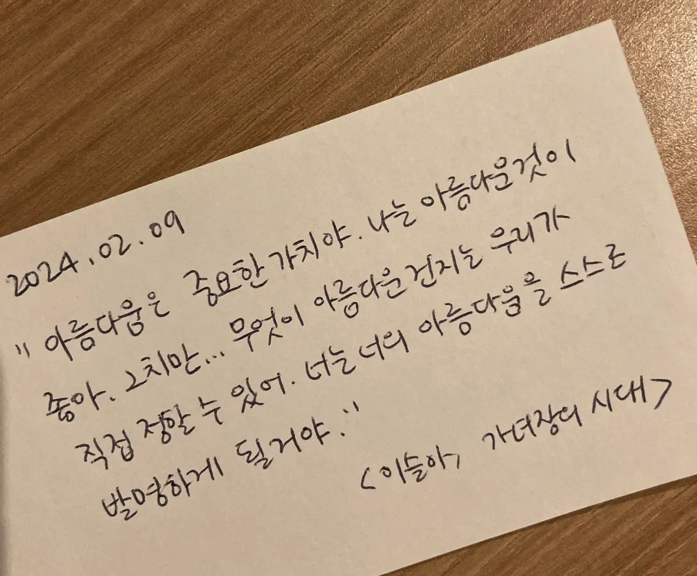 2024.02.09
"아름다움은 중요한 가치야. 나는 아름다운것이
좋아. 그치만... 무엇이 아름다운건지는 우리가
직접 정할 수 있어. 너는 너의 아름다움을 스스로
발명하게 될거야."
<이슬아, 가녀장의 시대>